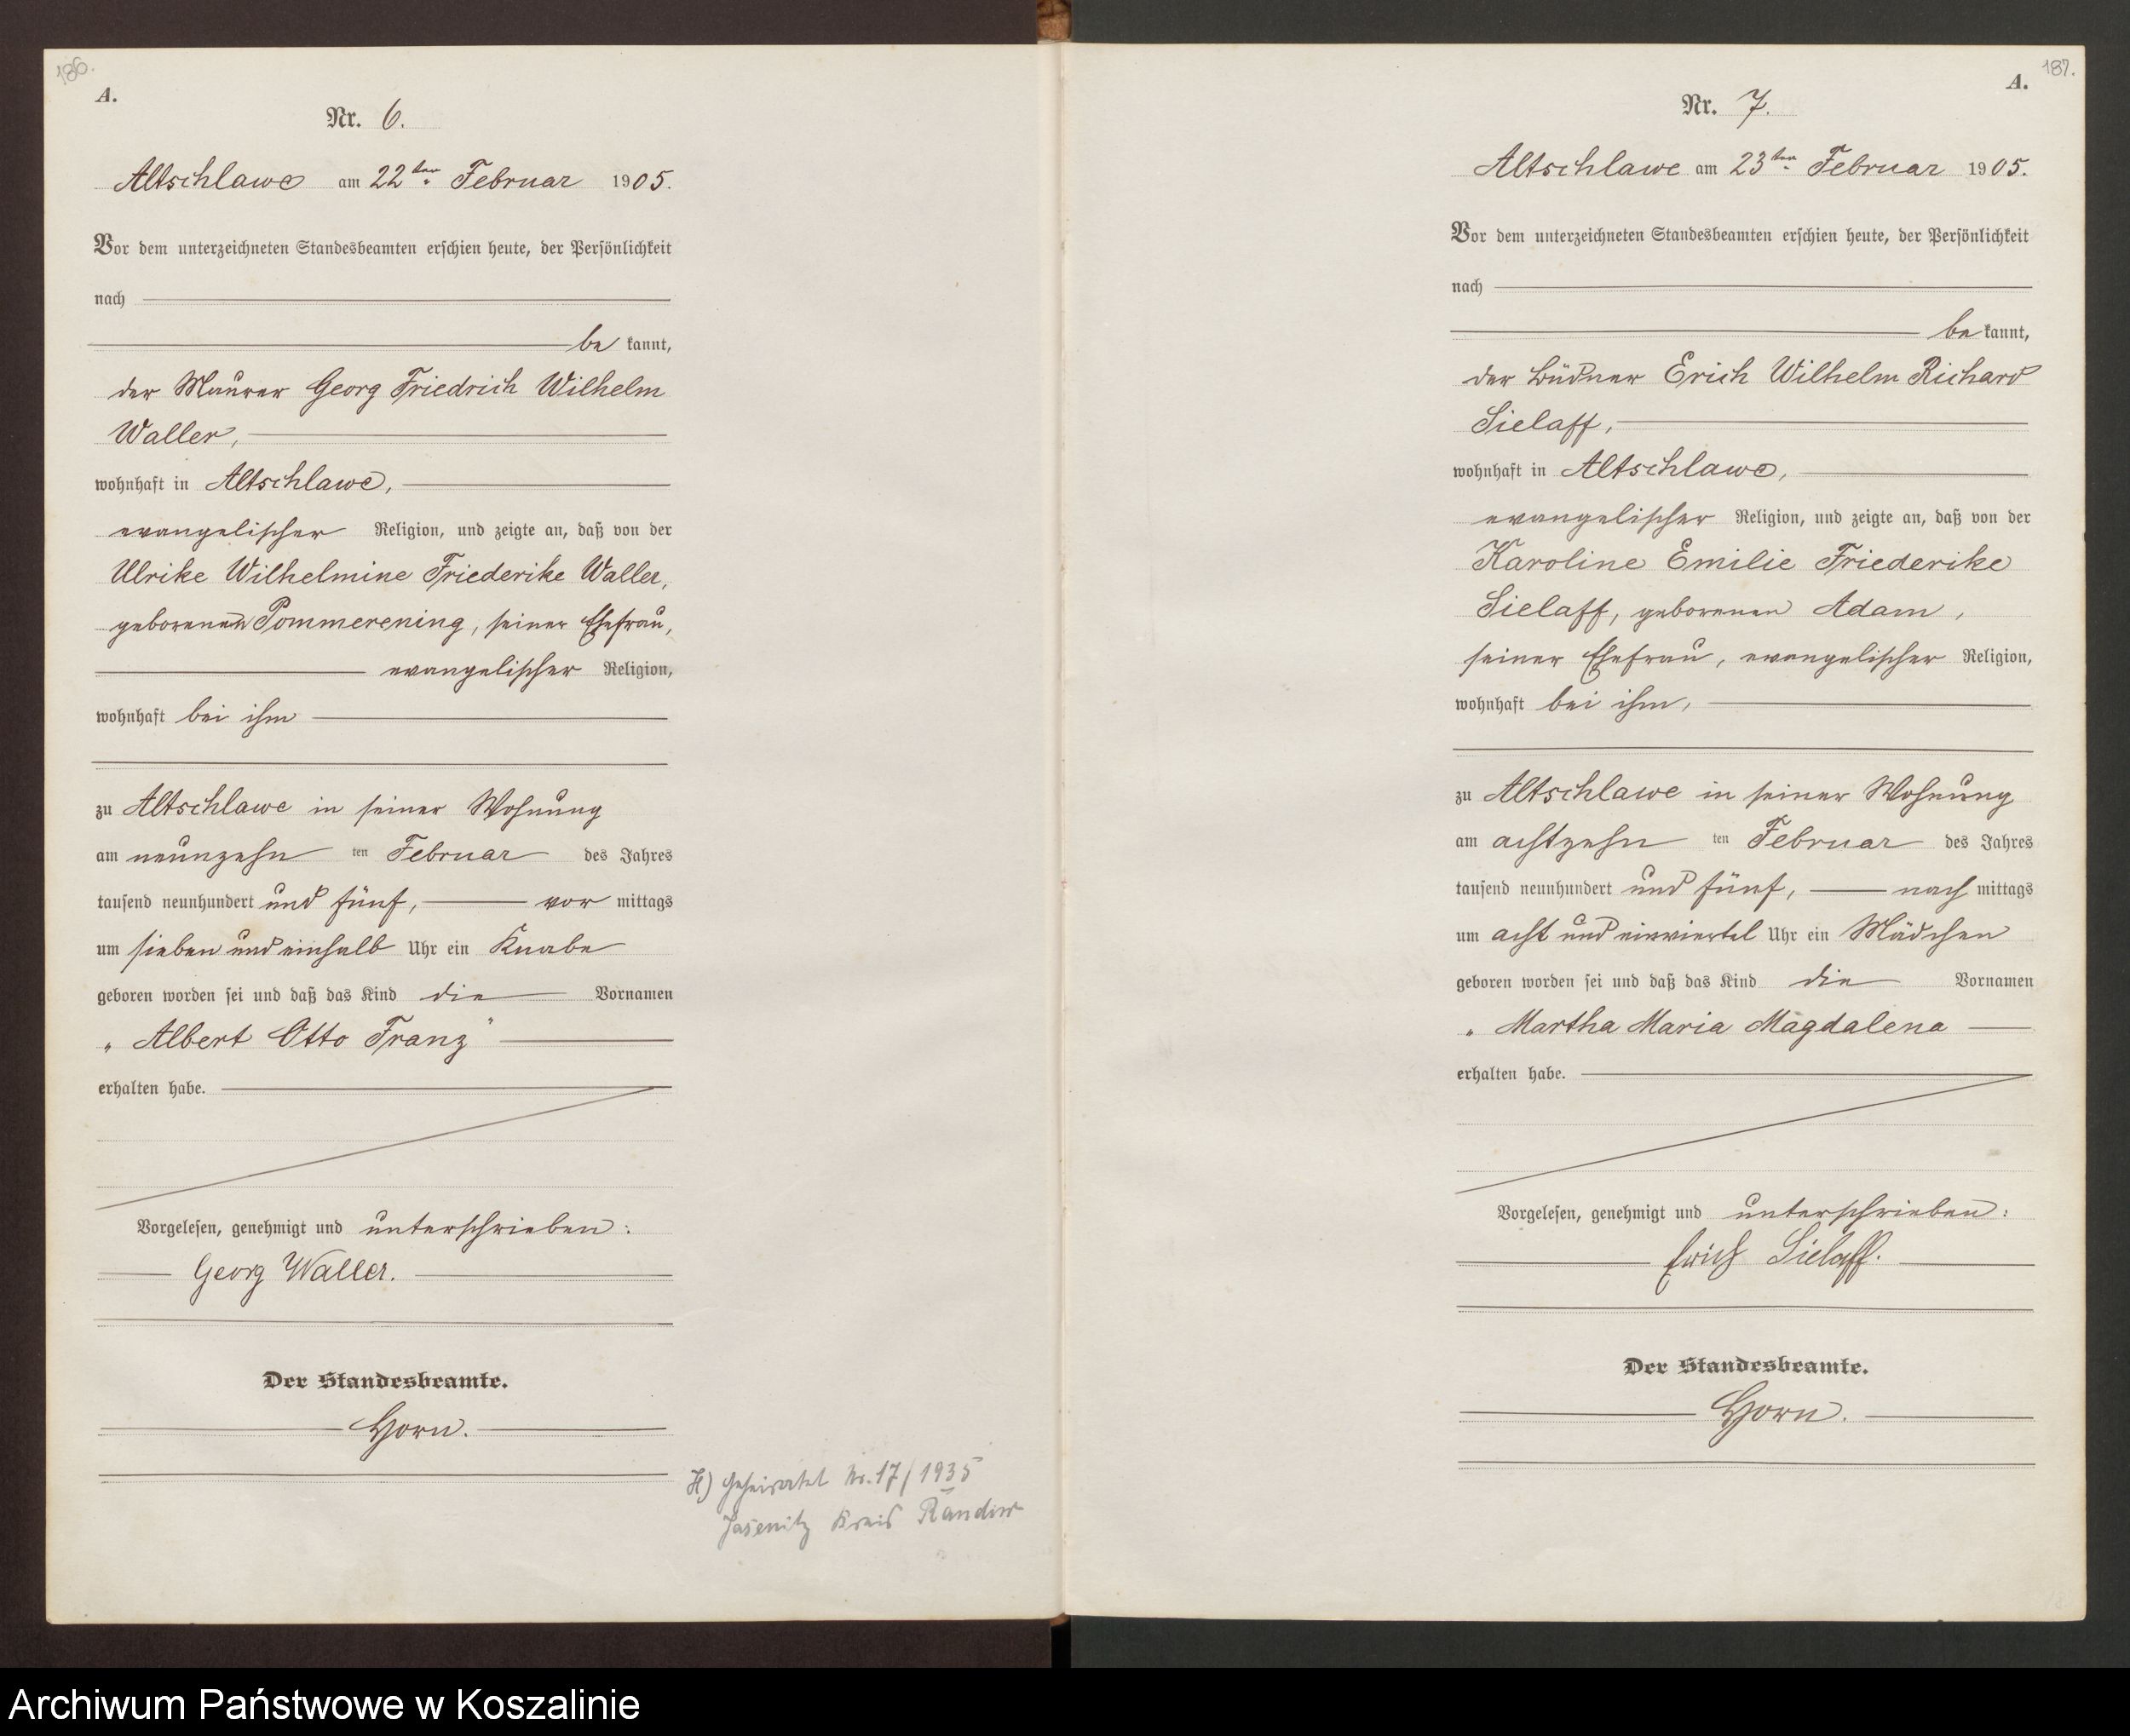 186.
A.
Nr. 6.
Altschlawe am 22ten Februar 1905.
Vor dem unterzeichneten Standesbeamten erschien heute, der Persönlichkeit
nach
be kannt,
der Maurer Georg Friedrich Wilhelm
Waller,
wohnhaft in Altschlawe,
evangelischer Religion, und zeigte an, daß von der
Ulrike Wilhelmine Friederike Waller,
geborenen Pommerening, seiner Ehefrau,
evangelischer Religion,
wohnhaft bei ihm
zu Altschlawe in seiner Wohnung
am neunzehn ten Februar des Jahres
tausend neunhundert und fünf, vor mittags
um sieben und einhalb Uhr ein Knabe
geboren worden sei und daß das Kind die Vornamen
„Albert Otto Franz"
erhalten habe.
Vorgelesen, genehmigt und unterschrieben:
Georg Waller.
Der Standesbeamte.
Horn.
H) Geheiratet Nr. 17/1935
Jasenitz Kreis Randow
187.
A.
Nr. 7.
Altschlawe am 23ten Februar 1905.
Vor dem unterzeichneten Standesbeamten erschien heute, der Persönlichkeit
nach
be kannt,
der Büdner Erich Wilhelm Richard
Sielaff,
wohnhaft in Altschlawe,
evangelischer Religion, und zeigte an, daß von der
Karoline Emilie Friederike
Sielaff, geborenen Adam,
seiner Ehefrau, evangelischer Religion,
wohnhaft bei ihm,
zu Altschlawe in seiner Wohnung
am achtzehn ten Februar des Jahres
tausend neunhundert und fünf, nach mittags
um acht und einviertel Uhr ein Mädchen
geboren worden sei und daß das Kind die Vornamen
„Martha Maria Magdalena
erhalten habe.
Vorgelesen, genehmigt und unterschrieben:
Erich Sielaff.
Der Standesbeamte.
Horn.
Archiwum Państwowe w Koszalinie